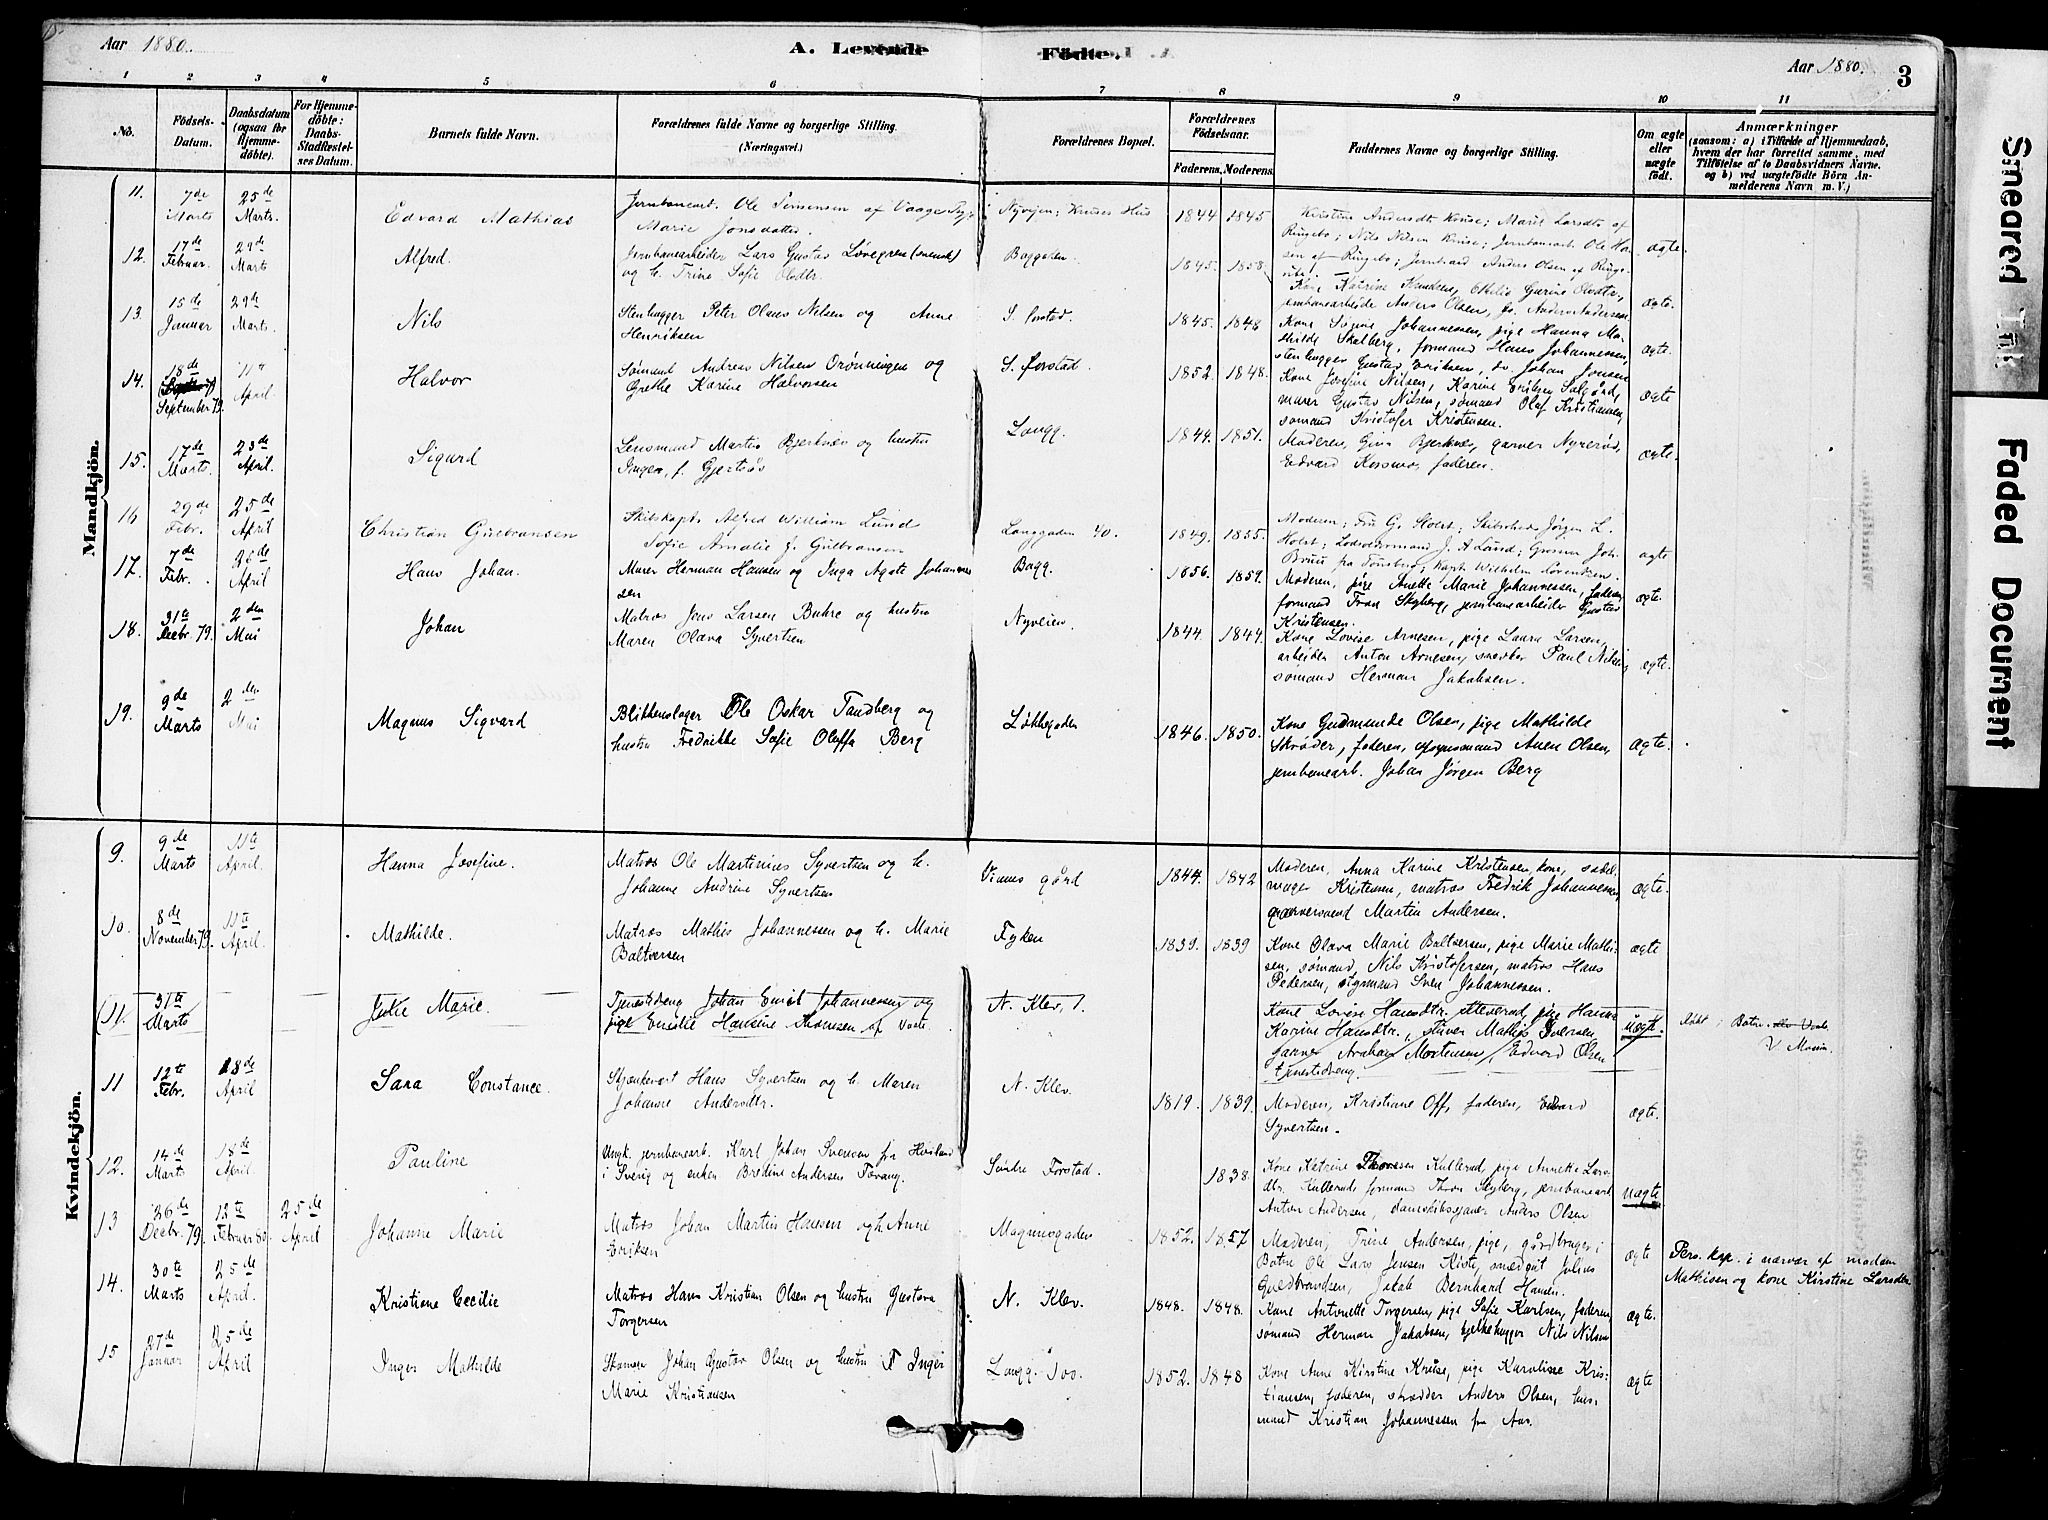 Aar 1880.
A. Levende Födte.
Aar 1880.
3
1 2 3 4 5 6 7 8 9 10 11
No.
Födsels-Datum.
Daabsdatum (ogsaa for Hjemmedöbte).
For Hjemmedöbte: Daabs-Stadfæstelses Datum.
Barnets fulde Navn.
Forældrenes fulde Navne og borgerlige Stilling. (Næringsvei.)
Forældrenes Bopæl.
Forældrenes Födselsaar.
Faderens. Moderens.
Faddernes Navne og borgerlige Stilling.
Om ægte eller uægte født.
Anmærkninger
(saasom: a) i Tilfælde af Hjemmedaab, hvem der har forrettet samme, med Tilföielse af to Daabsvidners Navne. og b) ved uægtefödte Börn Anmelderens Navn m. V.)
Mandkjön.
11. 7de Marts 25de Marts. Edvard Mathias
Jernbanearb. Ole Simensen af Vaage
Marie Jonsdatter.
Nyvejen; Knuses Hus 1844 1845
Kirstine Andersdtr Knuse; Marit Larsdtr af
Ringebo; Nils Nilsen Knuse; Jernbanearb. Ole Hansen af Ringebo; Jernbarb Anders Olsen af Ringebo.
ægte.
12. 17de Februar. 29de Marts Alfred.
Jernbanearbeider Lars Gustav Løvegren (svensk)
og h. Trine Sofie Olsdtr.
Baggaden. 1845. 1858.
Kone Katrine Knudsen, Otilie Gurine Olsdtr,
jernbanearbeide Anders Olsen, do. Anders Andersen
ægte.
13. 15de Januar 29de Marts. Nils
Stenhugger Peter Olaus Nilsen og Anne
Henriksen
S. forstad. 1845. 1848
Kone Sofie Johannessen, pige Hanna Mathilde Skalberg, formand Hans Johannessen,
stenhugger Gustav Eriksen, do. Johan Jonsen
ægte.
14. 18de September 79. 11te April Halvor
Sømand Andreas Nilsen Orønningen og
Grethe Karine Halvorsen
S. forstad. 1852. 1848.
Kone Josefine Nilsen, Karine Eriksen Solgård,
murer Gustav Nilsen, sømand Olaf Kristiansen,
sømand Kristofer Kristensen.
ægte
15. 17de Marts. 23de April. Sigurd
Lensmand Martin Bjerknes og hustru
Inger, f. Gjertsøs
Langg. 1844. 1851.
Moderen, Gina Bjerknes, garver Nyrerød,
Edvard Korsmo, faderen.
ægte.
16 29de Febr. 25de April Christian Gulbransen
Skibskapt. Alfred William Lund
Sofie Amalie f. Gulbransen
Langgaden 40. 1849. 1855.
Moderen; Fru G. Stoert; Skibsreder Jørgen L.
Holst; Lodsoldermand J. A Lund; Grosserer Joh.
Bruu fra Tönsberg; Kapt. Wilhelm Lorentzen.
ægte
17. 7de Febr. 26de April Hans Johan.
Murer Herman Hansen og Inga Agate Johannessen
Bagg. 1856. 1859.
Moderen, pige Anette Marie Johannessen, faderen
formand Tron Skyberg, jernbanearbeider Gustav
Kristensen.
ægte.
18. 31te Decbr. 79. 2den Mai Johan
Matros Jens Larsen Buhre og hustru
Maren Olava Syvertsen
Nyveien. 1844. 1844.
Kone Lovise Arnesen, pige Laura Larsen,
arbeider Anton Arnesen, snedker Paul Nilsen,
sømand Herman Jakobsen.
ægte.
19. 9de Marts 2den Mai Magnus Sigvard
Blikkenslager Ole Oskar Tandberg og
hustru Fredrikke Sofie Oluffa Berg
Løkkegaden 1846. 1850.
Kone Gudmunde Olsen, pige Mathilde
Skrøder, faderen, opsynsmand Anen Olsen,
jernbanearb. Johan Jørgen Berg
ægte.
Kvindekjön.
9. 9de Marts 11te April Hanna Josefine.
Matros Ole Martinius Syvertsen og h.
Johanne Andrine Syvertsen
Vinnes gård 1844. 1842
Moderen, Anna Karine Kristensen kone, sadelmager Kristensen, matros Fredrik Johannessen,
garversvend Martin Andersen.
ægte.
10. 8de November 79. 11te April. Mathilde.
Matros Mathis Johannessen og h. Marie
Baltsersen
Fyken 1839. 1839
Kone Olava Marie Baltsersen, pige Marie Mathisen, sømand, Nils Kristofersen, matros Hans
Pedersen, sigmand Sven Johannessen.
ægte
(11. 31te Marts Julie Marie.
Tjenestedreng Johan Emil Johannessen og
pige Emilie Hansine Thomsen af Vaale
N. Klev, 1.
Kone Lovise Hansdtr. Elleverød, pige Hanna
Karine Hansdtr., stuver Mathis Iversen
ganner Avaham Mortensen, Edvard Olsen
tjenestedreng.
uægt.
döbt i Botne
11 12te Febr. 18de April Sara Constance.
Skjenkevert Hans Syvertsen og h. Maren
Johanne Andersdtr.
N. Klev. 1819. 1839.
Moderen, Kristiane Off, faderen, Edvard
Syvertsen.
ægte.
12. 14de Marts 18de April. Pauline
Ungk. jernbanearb. Karl Johan Svensen fra
i Sverig og enken Bredine Andersen Torvang.
Søndre Forstad. 1838.
Kone Katrine Thoresen Kullerud, pige Annette Larsdtr. Kullerud, formand Thron Skyberg, jernbanearb
Anton Andersen, damskibsfører Anders Olsen
uægte
13 26de Decbr. 79. 12te Februar 80. 25de April Johanne Marie
Matros Johan Martin Hansen og h. Anne
Eriksen
Magnusgaden 1852. 1857
Moderen; Trine Andersen, pige, gårdbruger i
Botne Ole Lars Jensen Kiste, smedgut Julius
Guldbrandsen, Jakob Bernhard Hansen.
ægte
Pers. kap. i nærvær af madam
Mathisen og kone Kirstine Larsdtr
14. 30te Marts 25de April. Kristiane Cecilie
Matros Hans Kristian Olsen og hustru Gustava
Torgersen
N. Klev. 1848. 1848.
Kone Antonette Torgersen, pige Sofie Karlsen, faderen
sømand Herman Jakobsen, bjelkehugger Nils Nilsen
ægte.
15 27de Januar 25de April Inger Mathilde
Skomager Johan Gustav Olsen og hustru Inger
Marie Kristiansen
Langg. 100. 1852. 1848
Kone Anne Kirstine Kruse, pige Karolisse Kristiansen, faderen, skrædder Anders Olsen, husmand Kristian Johannessen fra Aas.
ægte
Smeared Ink
Faded Document